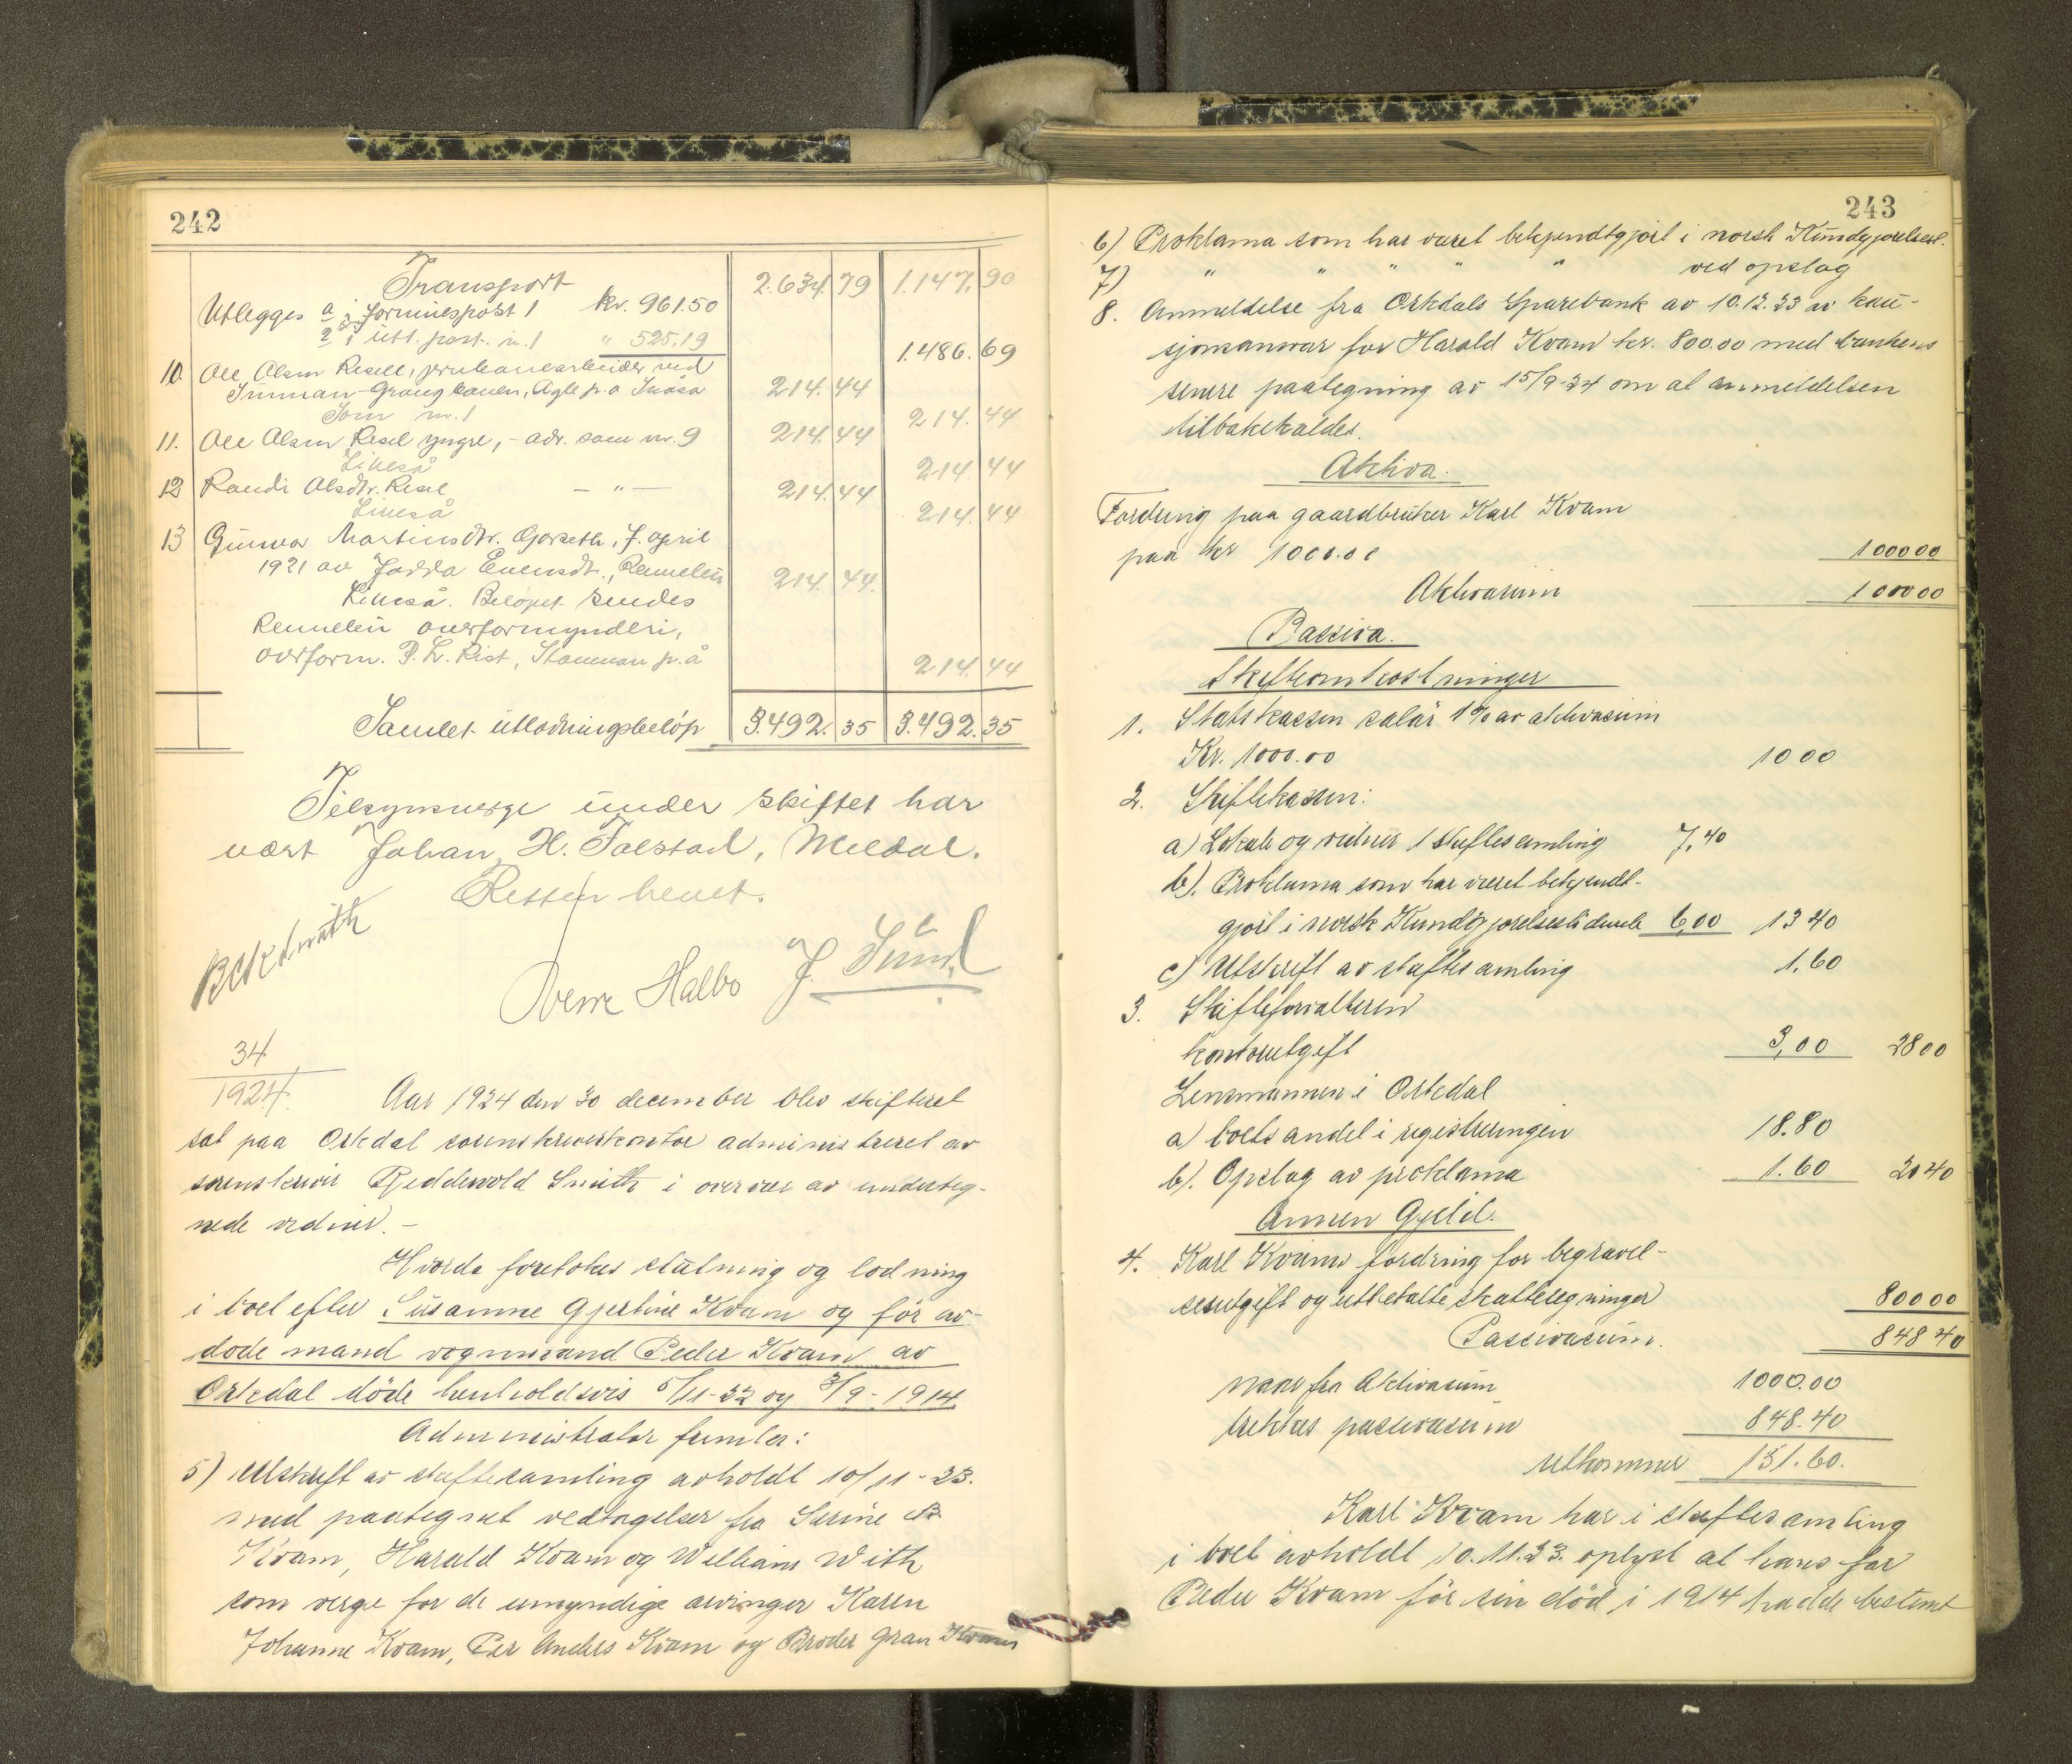 242
Transport 2.634.79 1.147.90
Utlegges a i formuespost 1 kr. 961.50
2 i utl. post. n. 1 " 525.19 1.486.69
10. Ole Olsen Resell, jernbanearbeider ved
Snaasa 214.44
Som nr. 1 214.44
11. Ole Olsen Resel yngre, - adr. som nr. 9 214.44
Likeså 214.44
12 Randi Olsdtr. Resel — " — 214.44
Likeså 214.44
13 Gunvor Martinsdtr. Garseth, f. april
1921 av Jadda Evensdt., Rennebu 214.44.
Likeså. Beløpet sendes
Rennebu overformynderi,
overform. P. L. Rist, Stamnan p.å 214.44
Samlet utlodningsbeløp 3.492.35 3.492.35
Tilsynsverge under skiftet har
vært Johan H. Folstad, Meldal.
Retten hevet.
Arne Halbo J. Sund
34
1924.
Aar 1934 den 30 december blev skifteret
sat paa Orkdal sorenskriverkontor administreret av
sorenskriver Smith i overvær av underteg-
nede vidner. -
Hvorda foretokes slutning og lodning
i boet efter Susanne Gjertine Kvam og før av-
døde mand vognmand Peder Kvam av
Orkdal døde henholdsvis 5/11-32 og 3/9-1914
Administrator fremla:
5) Utskrift av skiftesamling avholdt 10/11-33.
med paategnet vedtagelser fra Serine B.
Kvam, Harald Kvam og William With
som verge for de umyndige arvinger Karen
Johanne Kvam, Per Anders Kvam og Broder Gran Kvam
243
6) Proklama som har været bekjendtgjort i norsk Kundgjørelsest.
7) " " " " " ved opslag
8. Anmeldelse fra Orkdals Sparebank av 10.12.33 av kau-
sjonsanvar for Harald Kvam kr. 800.00 med bankens
senere paategning av 15/9-34 om at anmeldelsen
tilbakekaldes.
Aktiva.
Fordring paa gaardbruker Karl Kvam
paa kr 1000.00 1000 00
Aktivasum 1000 00
Passiva.
Skifteomkostninger
1. Statskassen salær 1% av aktivasum
Kr. 1000.00 10 00
2. Skiftekassen:
a) Lokale og vidner 1 skiftesamling 7,40
b). Proklama som har været bekjendt-
gjort i norsk Kundgjørelsestidende 6,00 13 40
c) Utskrift av skiftesamling 1.60
3. Skifteforvalteren
kontorutgift 3,00 28 00
Lensmannen i Orkedal
a) boets andel i registreringen 18.80
b). Opslag av proklama 1.60 20 40
Annen Gjeld.
4. Karl Kvams fordring for begravel-
sesutgift og utbetalte skattelegninger 800 00
Passivasum. 848 40
naar fra Aktivasum 1000.00
trekkes passivasum 848.40
utkommer 151.60.
Karl Kvam har i skiftesamling
i boet avholdt 10.11.33. oplyst at hans far
Peder Kvam før sin død i 1914 hadde bestemt